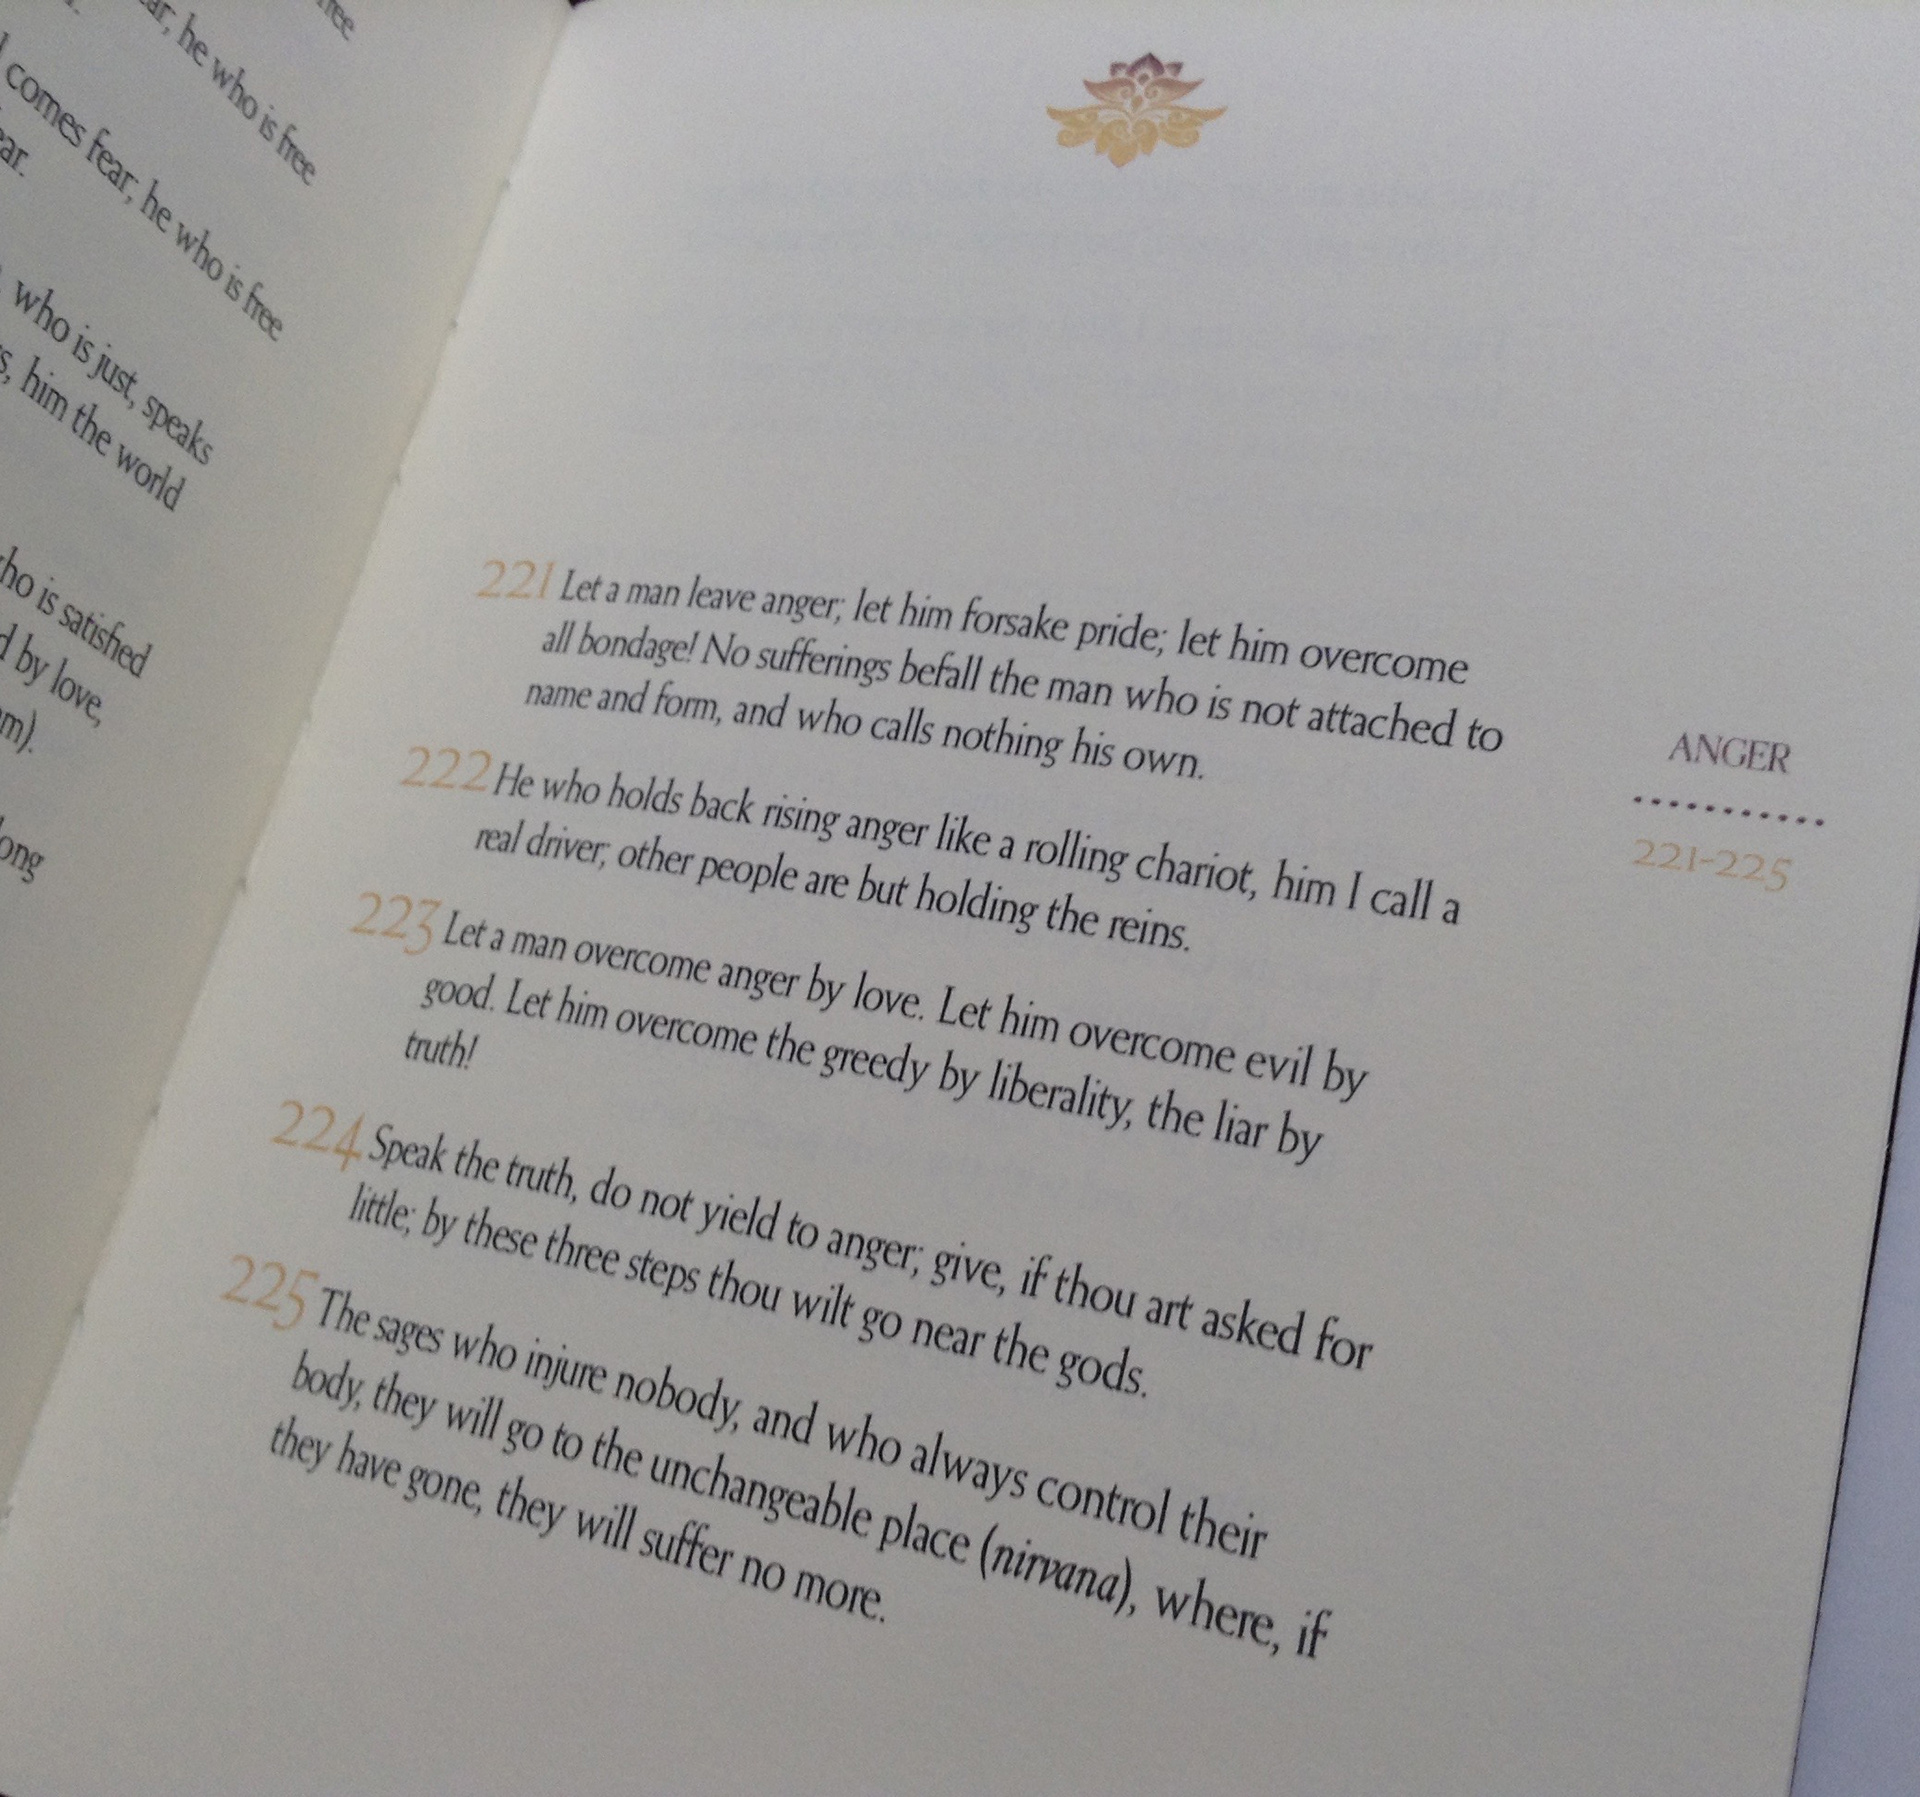 free
he who is free
comes fear, he who is free
who is just, speaks
him the world
who is satisfied
by love,
221 Let a man leave anger; let him forsake pride; let him overcome
all bondage! No sufferings befall the man who is not attached to
name and form, and who calls nothing his own.
222 He who holds back rising anger like a rolling chariot, him I call a
real driver; other people are but holding the reins.
223 Let a man overcome anger by love. Let him overcome evil by
good. Let him overcome the greedy by liberality, the liar by
truth!
224 Speak the truth, do not yield to anger; give, if thou art asked for
little; by these three steps thou wilt go near the gods.
225 The sages who injure nobody, and who always control their
body, they will go to the unchangeable place (nirvana), where, if
they have gone, they will suffer no more.
ANGER
221-225